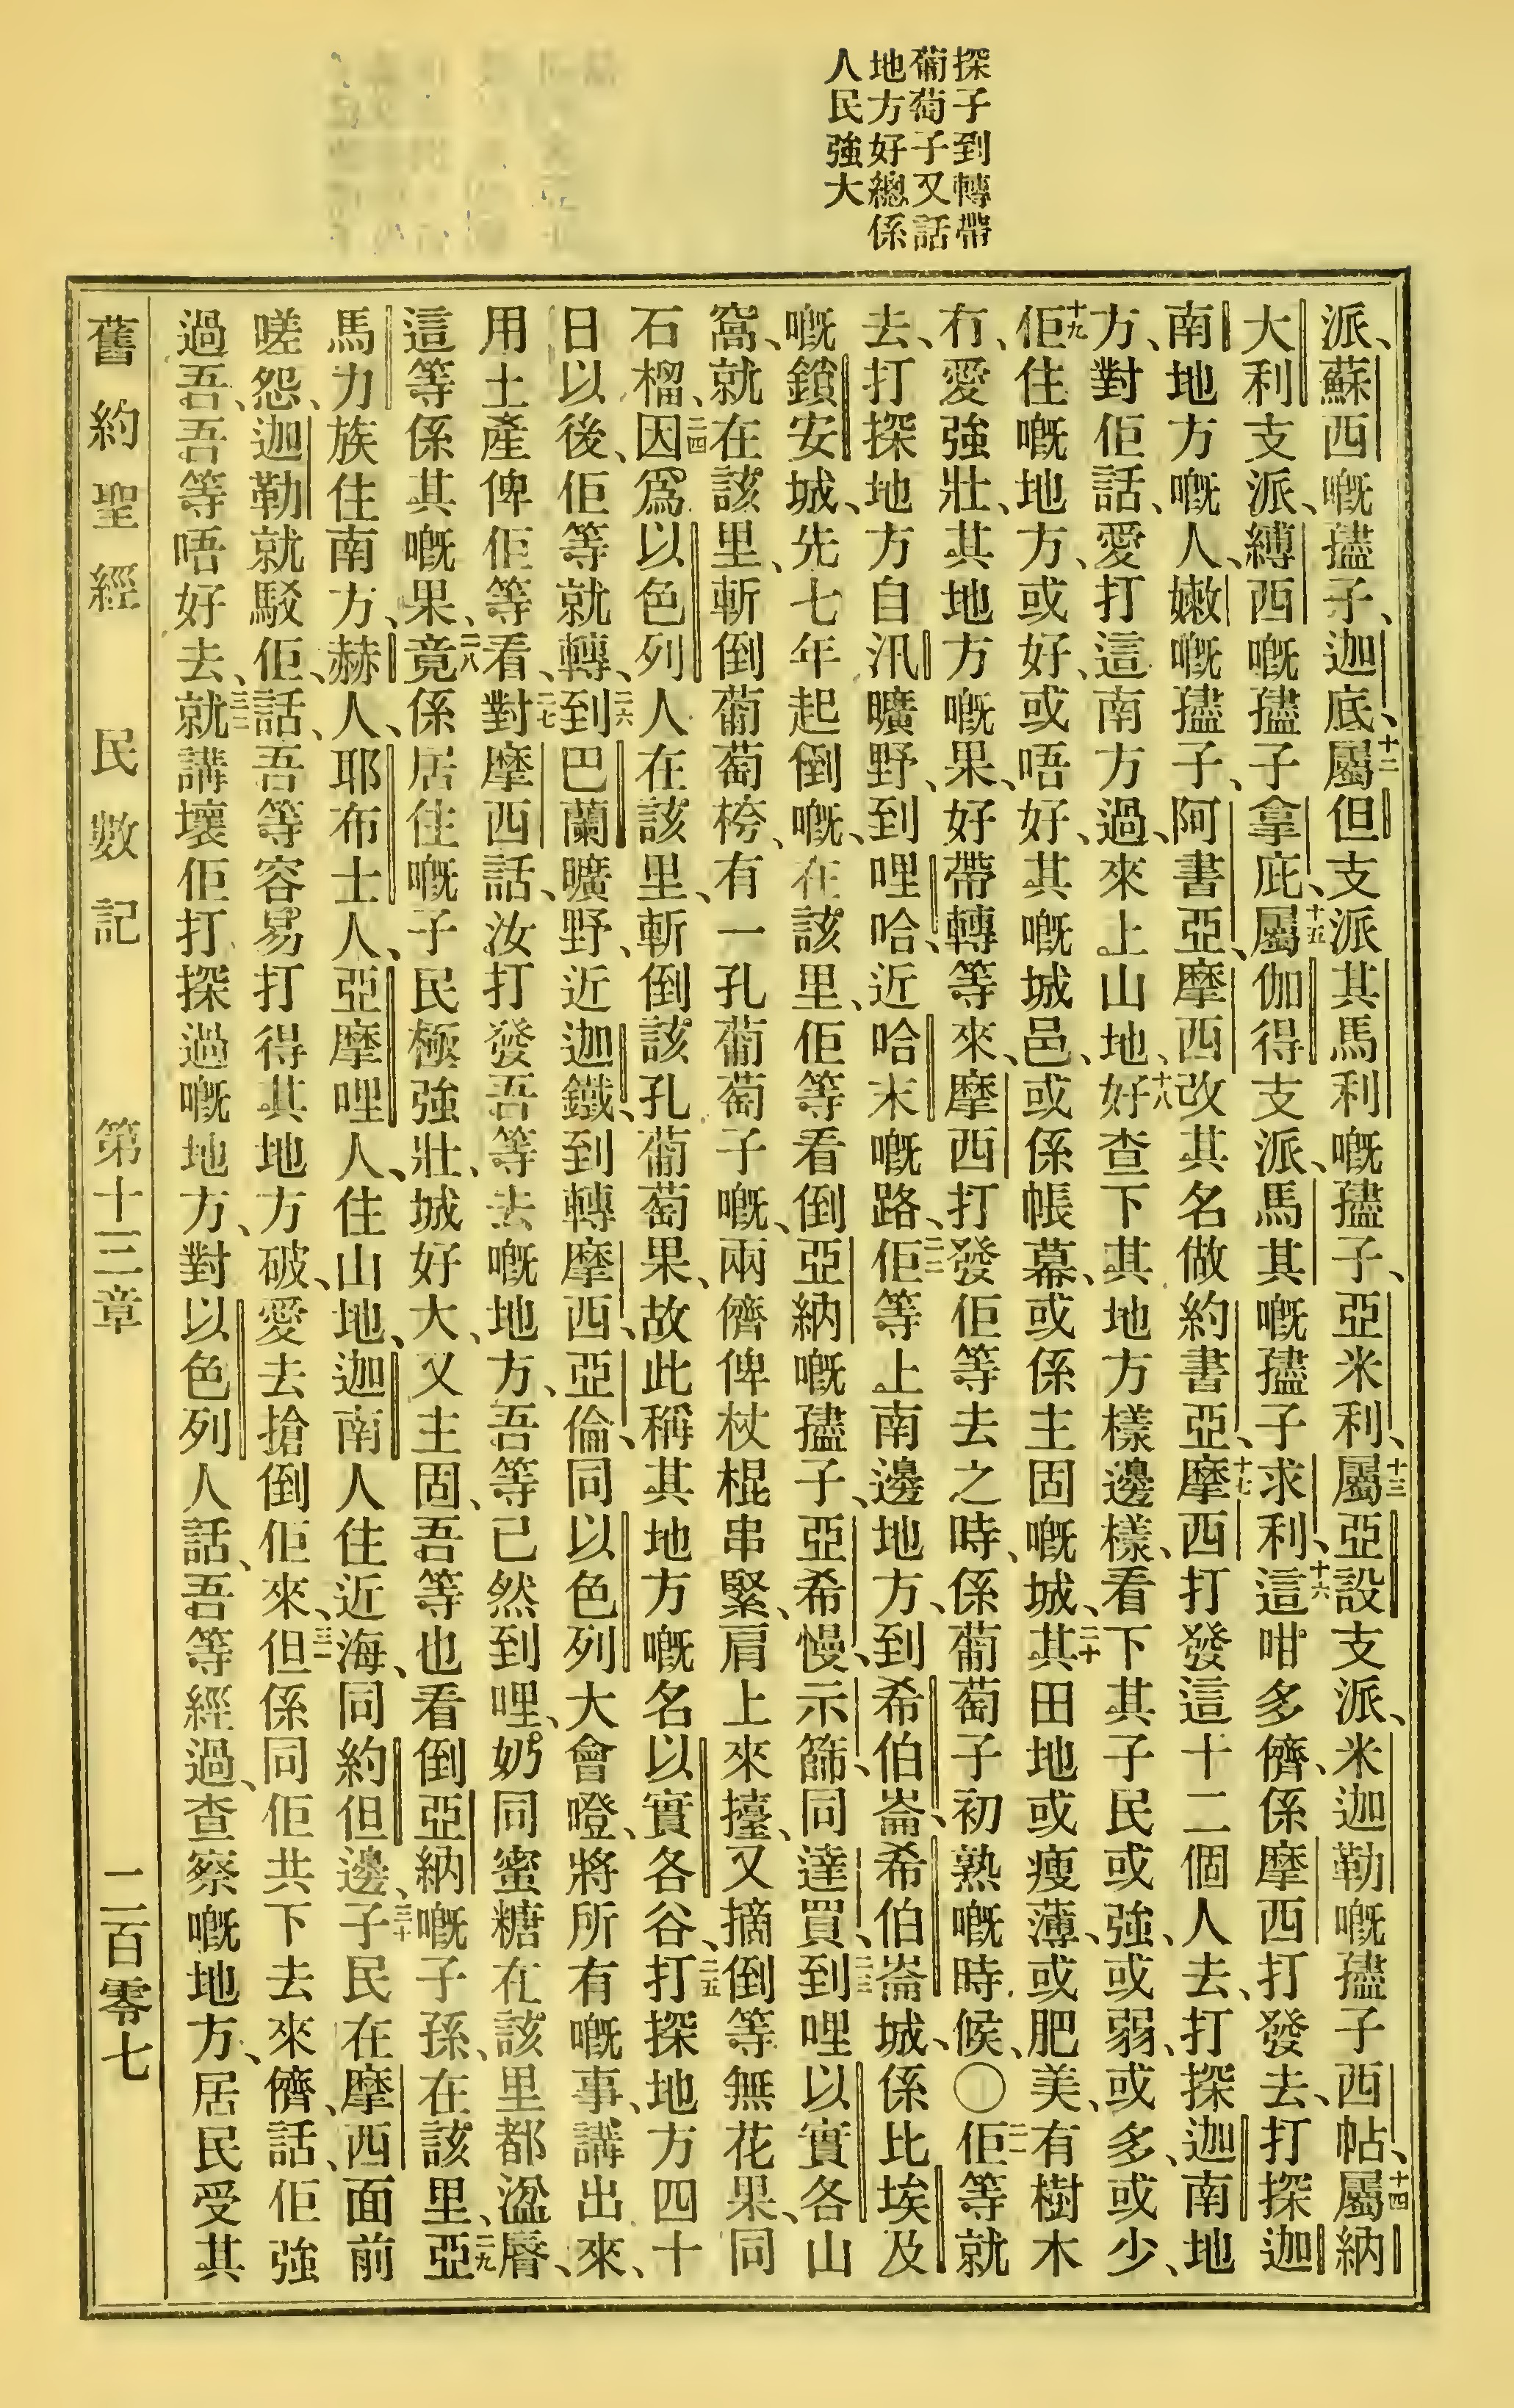 探子到轉帶
葡萄子又話
地方好總係
人民強大
派、蘇西嘅𡥧子、迦底、十二屬但支派其馬利嘅𡥧子、亞米利、十三屬亞設支派、米迦勒嘅𡥧子西帖、十四屬納
大利支派、縛西嘅𡥧子拿庇、十五屬伽得支派、馬其嘅𡥧子求利、十六這咁多儕、係摩西打發去、打探迦
南地方嘅人、嫩嘅𡥧子、阿書亞、摩西改其名做約書亞、十七摩西打發這十二個人去、打探迦南地
方、對佢話、愛打這南方過、來上山地、十八好查下其地方樣邊樣、看下其子民或強、或弱、或多、或少、
十九佢住嘅地方、或好、或唔好、其嘅城邑、或係帳幕、或係主固嘅城、二十其田地或瘦薄、或肥美、有樹木
冇、愛強壯、其地方嘅果、好帶轉等來、摩西打發佢等去之時、係葡萄子初熟嘅時候、〇二一佢等就
去、打探地方自汛曠野、到哩哈、近哈末嘅路、二二佢等上南邊地方、到希伯崙、希伯崙城、係比埃及
嘅鎖安城、先七年起倒嘅、在該里、佢等看倒亞納嘅𡥧子、亞希慢、示篩、同達買、二三到哩以實各山
窩、就在該里、斬倒葡萄桍、有一孔葡萄子嘅、兩儕俾杖棍串緊、肩上來擡、又摘倒等無花果、同
石榴、二四因爲以色列人在該里、斬倒該孔葡萄果、故此稱其地方嘅名以實各谷、二五打探地方四十
日以後、佢等就轉、二六到巴蘭曠野、近迦鐵、到轉摩西、亞倫、同以色列大會嶝、將所有嘅事、講出來、
用土產俾佢等看、二七對摩西話、汝打發吾等去嘅地方、吾等已然到哩、奶同蜜糖在該里都湓層、
這等係其嘅果、二八竟係居住嘅子民極強壯、城好大、又主固、吾等也看倒亞納嘅子孫、在該里、二九亞
馬力族住南方、赫人、耶布士人、亞摩哩人、住山地、迦南人住近海、同約但邊、三十子民在摩西面前
嗟怨、迦勒就駁佢、話、吾等容易打得其地方破、愛去搶倒佢來、三一但係同佢共下去來儕、話、佢強
過吾、吾等唔好去、三二就講壞佢打探過嘅地方、對以色列人話、吾等經過、查察嘅地方、居民受其
舊約聖經 民數記 第十三章 二百零七